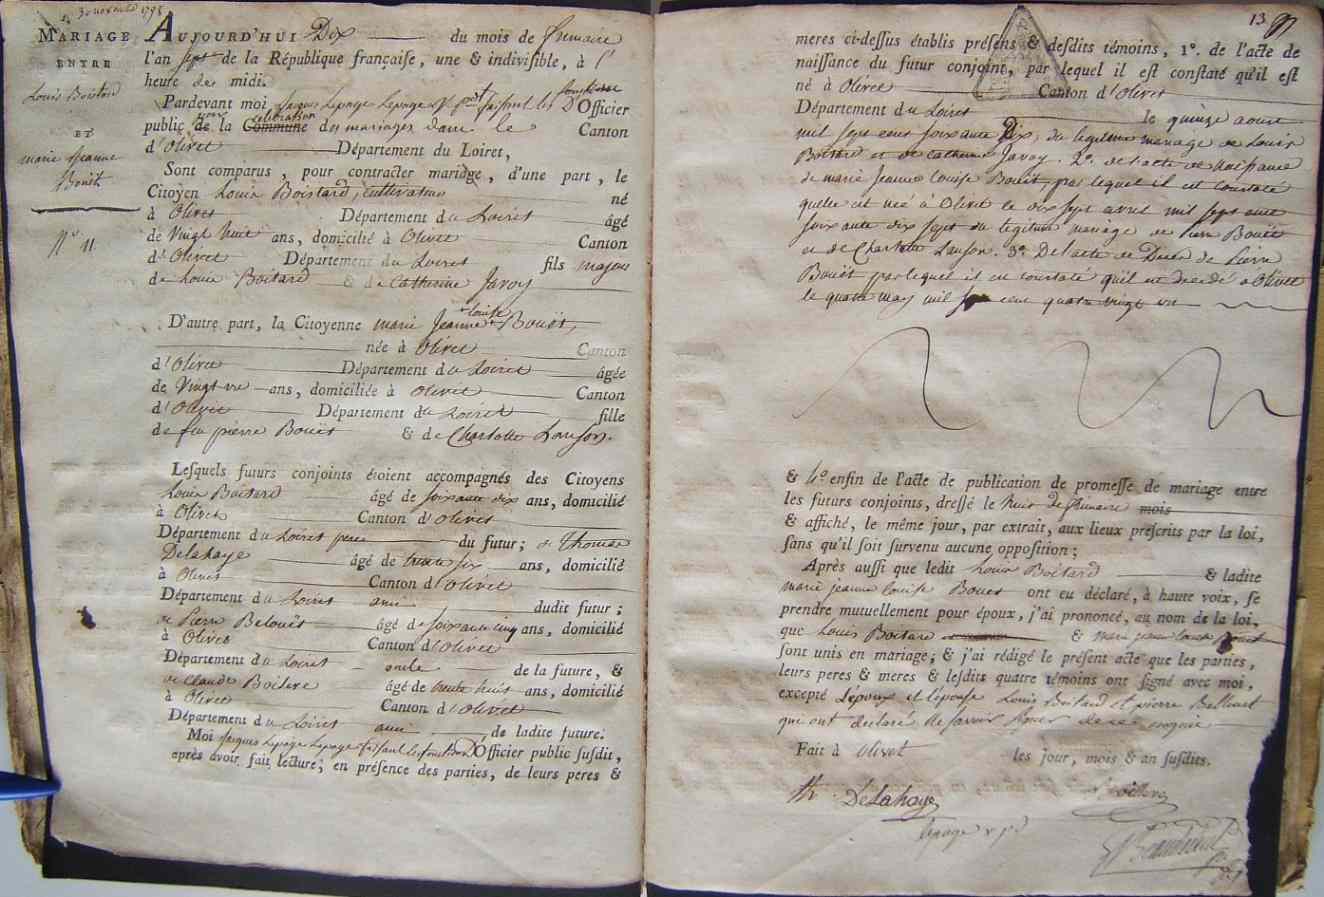 30 novembre 1798
MARIAGE
ENTRE
Louis Boistard
ET
marie Jeanne
Bouët
N.º 11
AUJOURD'HUI Dix du mois de frimaire
l'an sept de la République françaiſe, une & indiviſible, à l'
heure de midi.
Pardevant moi Jacques Lepage Lepage faiſant les fonctions D'Officier
public pour la célébration des mariages dans le Canton
d'Olivet Département du Loiret,
Sont comparus, pour contracter mariage, d'une part, le
Citoyen Louis Boistard, cultivateur né
à Olivet Département du Loiret âgé
de Vingt huit ans, domicilié à Olivet Canton
d'Olivet Département du Loiret fils majeur
de Louis Boitard & de Catherine Javoy
D'autre part, la Citoyenne marie Jeanne louise Bouët,
née à Olivet Canton
d'Olivet Département du Loiret âgée
de Vingt un ans, domiciliée à Olivet Canton
d'Olivet Département du Loiret fille
de feu pierre Bouët & de Charlotte Lanson.
Leſquels futurs conjoints étoient accompagnés des Citoyens
Louis Boitard âgé de soixante dix ans, domicilié
à Olivet Canton d'Olivet
Département du Loiret pere du futur; de Thomas
Delahaye âgé de trente six ans, domicilié
à Olivet Canton d'Olivet
Département du Loiret ami dudit futur;
de Pierre Belouët âgé de soixante cinq ans, domicilié
à Olivet Canton d'Olivet
Département du Loiret oncle de la future, &
de Claude Boilere âgé de trente huit ans, domicilié
à Olivet Canton d'Olivet
Département du Loiret ami de ladite future.
Moi Jacques Lepage Lepage faisant les fonctions D'Officier public ſuſdit,
après avoir fait lecture, en préſence des parties, de leurs peres &
13
meres ci-deſſus établis préſens & deſdits témoins, 1º. de l'acte de
naiſſance du futur conjoint, par lequel il eſt conſtaté qu'il eſt
né à Olivet Canton d'Olivet
Département du Loiret le quinze aoust
mil sept cent soixante Dix, du legitime mariage de Louis
Boitard et de Catherine Javoy. 2º. de l'acte de naissance
de marie Jeanne louise Bouët, par lequel il est constaté
quelle est neé à Olivet le dix sept avril mil sept cent
soixante dix sept du legitime mariage de Pierre Bouët
et de Charlotte Lanson. 3º. De l'acte de Deces de Pierre
Bouët par lequel il est constaté qu'il est decedé à Olivet
le quatre may mil sept cent quatre vingt un
& 4º enfin de l'acte de publication de promeſſe de mariage entre
les futurs conjoints, dreſſé le huit de frimaire mois
& affiché, le même jour, par extrait, aux lieux préſcrits par la loi,
ſans qu'il ſoit ſurvenu aucune oppoſition;
Après auſſi que ledit Louis Boitard & ladite
marie jeanne louise Bouet ont eu déclaré, à haute voix, ſe
prendre mutuellement pour époux, j'ai prononcé, au nom de la loi,
que Louis Boitard & marie jeanne louise Bouet
ſont unis en mariage; & j'ai rédigé le préſent acte que les parties,
leurs peres & meres & leſdits quatre témoins ont ſigné avec moi,
excepté L'époux et l'épouse Louis Boitard et pierre Bellouet
qui ont déclaré ne savoir signer de ce enquis
Fait à Olivet les jour, mois & an ſuſdits.
th. Delahaye
lepage